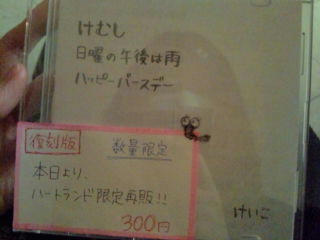 けむし
日曜の午後は雨
ハッピーバースデー
復刻版 数量限定
本日より、
ハートランド限定再販!!
300円
けいこ